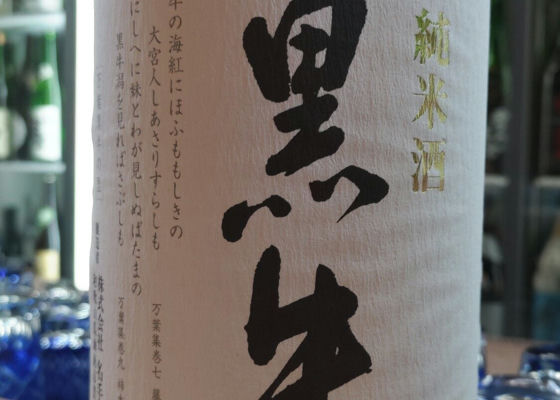 純米酒
黒牛
牛の海紅にほふももしきの
大宮人しあさりすらしも
万葉集巻七
にしへに妹とわが見しぬばたまの
黒牛潟を見ればさぶしも
万葉集巻九
株式会社 名手